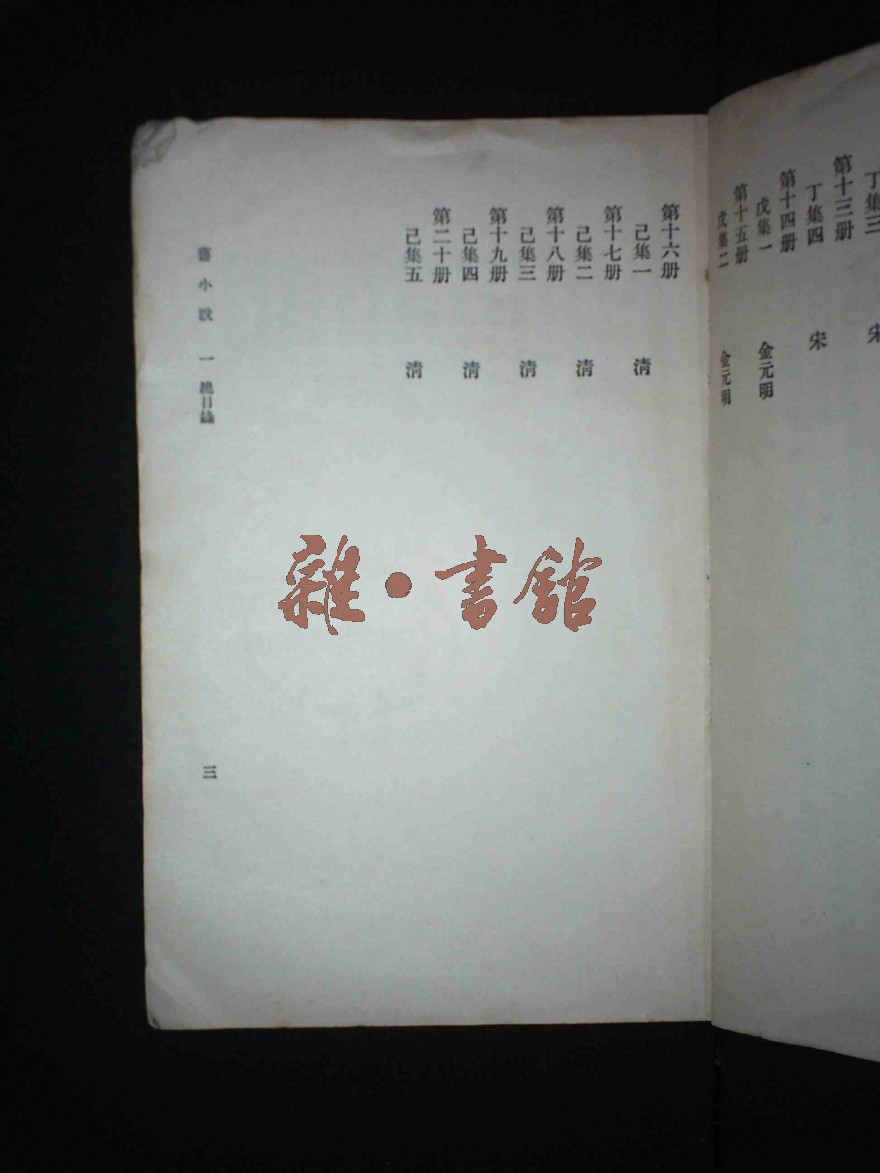 丁集三
宋
第十三册
丁集四
宋
第十四册
戊集一
金元明
第十五册
戊集二
金元明
第十六册
己集一
清
第十七册
己集二
清
第十八册
己集三
清
第十九册
己集四
清
第二十册
己集五
清
舊小說 一 總目錄
三
雜•書館